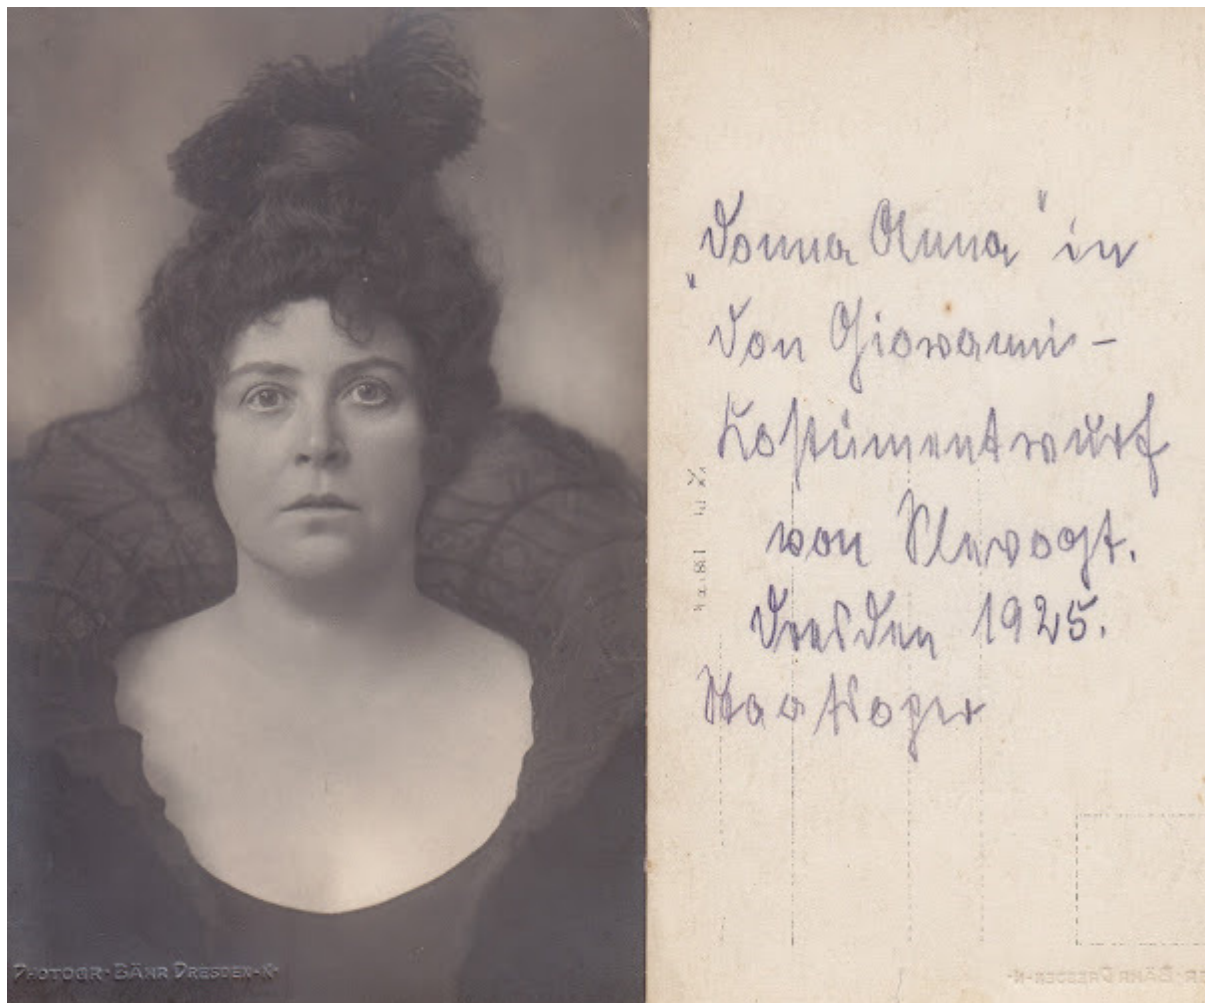 PHOTOGR· BÄHR DRESDEN-N·
„Donna Anna" in
Don Giovanni –
Kostümentwurf
von Slevogt.
Dresden 1925.
Staatsoper